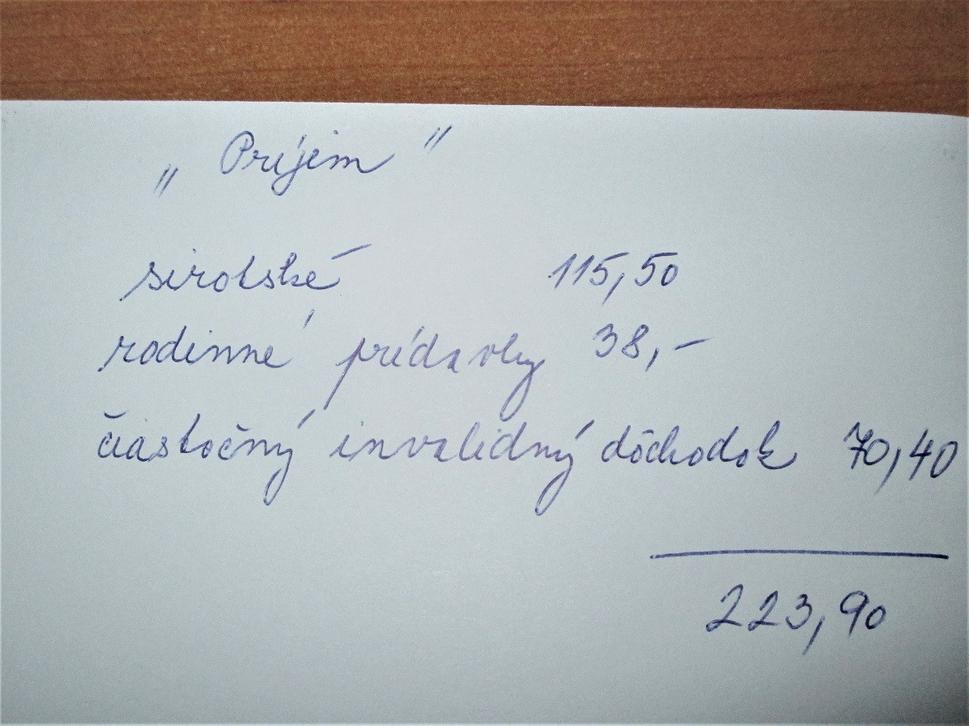 „ Príjem "
sirotské 115,50
rodinné prídavky 38,-
čiastočný invalidný dôchodok 70,40
223,90